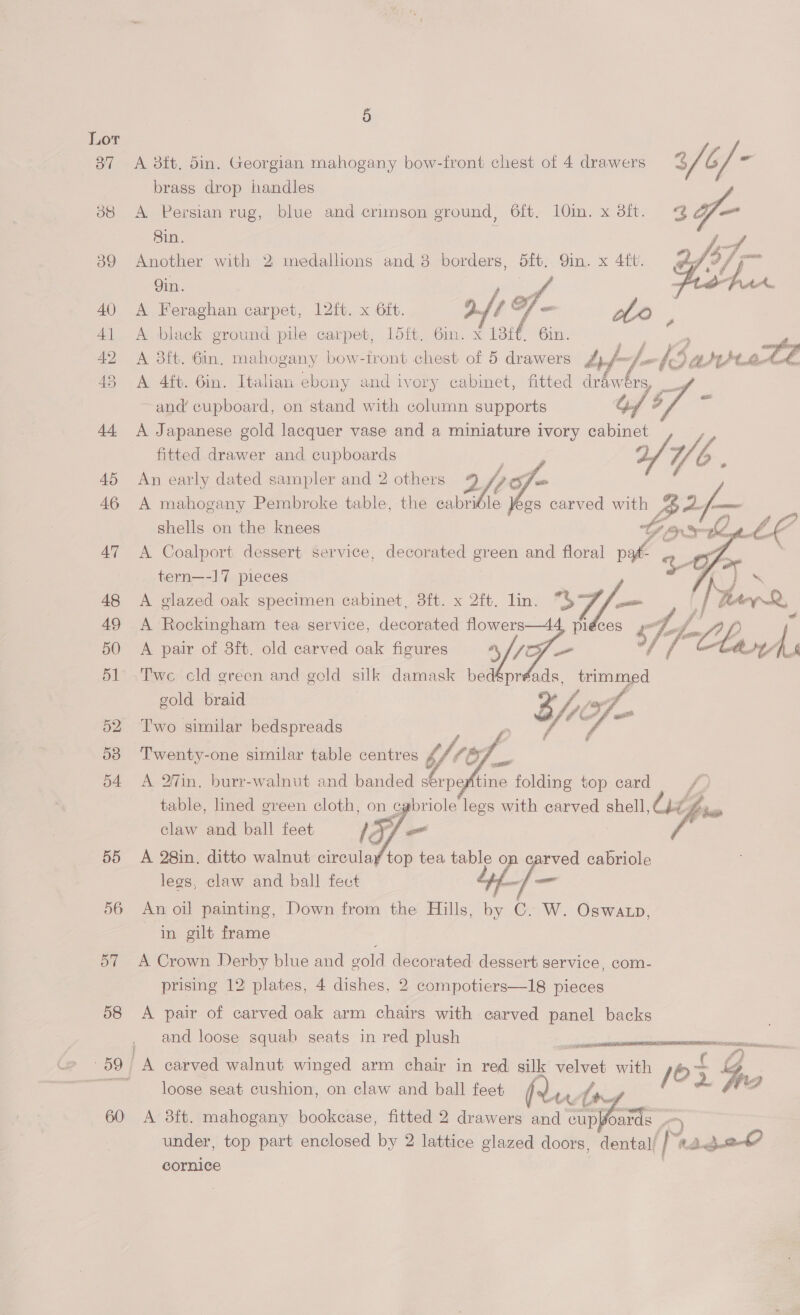 5
LOT
37 A 3ft. 5in. Georgian mahogany bow-front chest of 4 drawers 3/6/-
brass drop handles
38 A Persian rug, blue and crimson ground, 6ft. 10in. x 3ft.
8in.
39 Another with 2 medallions and 3 borders, 5ft. 9in. x 4ft.
9in.
40 A Feraghan carpet, 12ft. x 6ft. do
41 A black ground pile carpet, 15ft. 6in. x 13ft. 6in.
42 A 3ft. 6in. mahogany bow-front chest of 5 drawers
43 A 4ft. 6in. Italian ebony and ivory cabinet, fitted drawers,
and cupboard, on stand with column supports
44 A Japanese gold lacquer vase and a miniature ivory cabinet
fitted drawer and cupboards
45 An early dated sampler and 2 others
46 A mahogany Pembroke table, the cabriole legs carved with 32/-
shells on the knees
47 A Coalport dessert service, decorated green and floral pat-
tern—17 pieces
48 A glazed oak specimen cabinet, 3ft. x 2ft. 1in.
49 A Rockingham tea service, decorated flowers—44 pieces
50 A pair of 3ft. old carved oak figures
51 Two old green and gold silk damask bedspreads, trimmed
gold braid
52 Two similar bedspreads
53 Twenty-one similar table centres
54 A 27in. burr-walnut and banded serpentine folding top card
table, lined green cloth, on cabriole legs with carved shell,
claw and ball feet
55 A 28in. ditto walnut circular top tea table on carved cabriole
legs, claw and ball feet
56 An oil painting, Down from the Hills, by C. W. OSWALD,
in gilt frame
57 A Crown Derby blue and gold decorated dessert service, com-
prising 12 plates, 4 dishes, 2 compotiers—18 pieces
58 A pair of carved oak arm chairs with carved panel backs
and loose squab seats in red plush
59 A carved walnut winged arm chair in red silk velvet with
loose seat cushion, on claw and ball feet
60 A 3ft. mahogany bookcase, fitted 2 drawers and cupboards
under, top part enclosed by 2 lattice glazed doors, dental
cornice